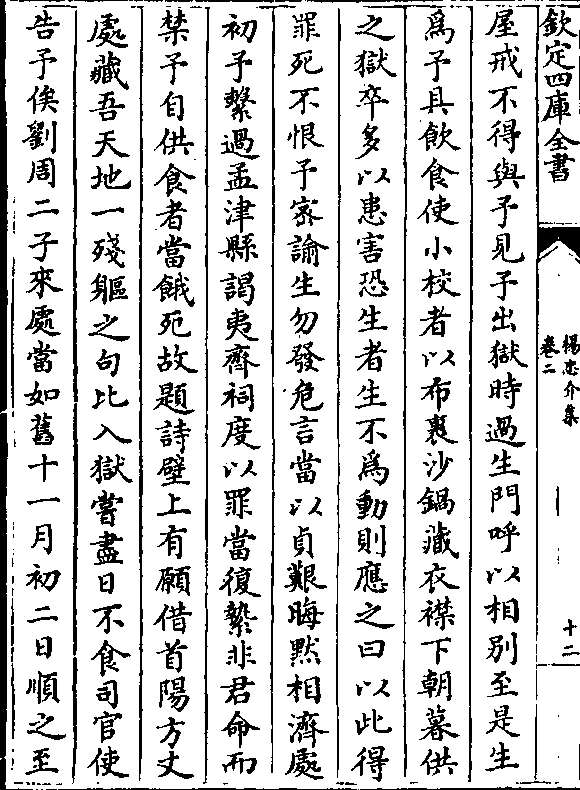 欽定四庫全書
楊忠介集
卷二
十二
屋戒不得與予見予出獄時過生門呼以相别至是生
為予具飲食使小校者以布裹沙鍋藏衣襟下朝暮供
之獄卒多以患害恐生者生不為動則應之曰以此得
罪死不恨予密諭生勿發危言當以貞艱晦默相濟處
初予繫過孟津縣謁夷齊祠度以罪當復縶非君命而
禁予自供食者當餓死故題詩壁上有願借首陽方丈
處藏吾天地一殘軀之句比入獄嘗盡日不食司官使
告予俟劉周二子來處當如舊十一月初二日順之至